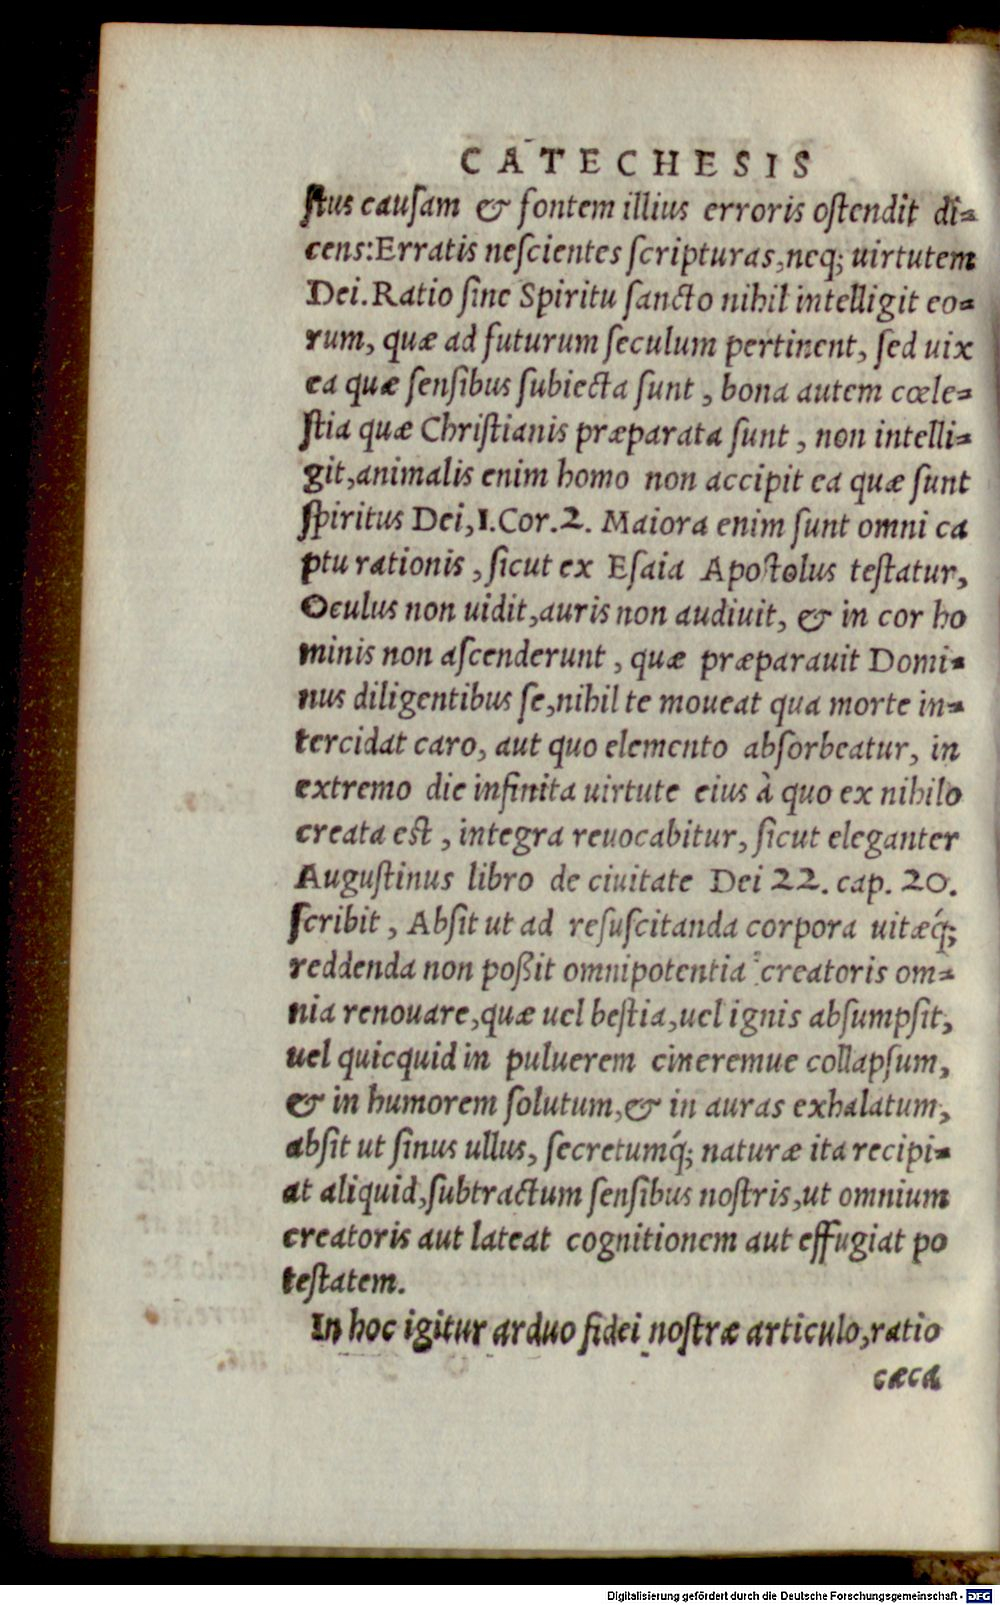 CATECHESIS
ſtus cauſam & fontem illius erroris oſtendit di-
cens: Erratis neſcientes ſcripturas, neq; uirtutem
Dei. Ratio ſine Spiritu ſancto nihil intelligit eo-
rum, quæ ad futurum ſeculum pertinent, ſed uix
ea quæ ſenſibus ſubiecta ſunt, bona autem cœle-
ſtia quæ Chriſtianis præparata ſunt, non intelli-
git, animalis enim homo non accipit ea quæ ſunt
ſpiritus Dei, 1. Cor. 2. Maiora enim ſunt omni ca
ptu rationis, ſicut ex Eſaia Apoſtolus teſtatur,
Oculus non uidit, auris non audiuit, & in cor ho
minis non aſcenderunt, quæ præparauit Domi-
nus diligentibus ſe, nihil te moueat qua morte in-
tercidat caro, aut quo elemento abſorbeatur, in
extremo die infinita uirtute eius à quo ex nihilo
creata eſt, integra reuocabitur, ſicut eleganter
Auguſtinus libro de ciuitate Dei 22. cap. 20.
ſcribit, Abſit ut ad reſuſcitanda corpora uitæq́;
reddenda non poßit omnipotentia creatoris om-
nia renouare, quæ uel beſtia, uel ignis abſumpſit,
uel quicquid in puluerem cineremue collapſum,
& in humorem ſolutum, & in auras exhalatum,
abſit ut ſinus ullus, ſecretumq́; naturæ ita recipi-
at aliquid, ſubtractum ſenſibus noſtris, ut omnium
creatoris aut lateat cognitionem aut effugiat po
teſtatem.
In hoc igitur arduo fidei noſtræ articulo, ratio
cæca
Digitalisierung gefördert durch die Deutsche Forschungsgemeinschaft - DFG